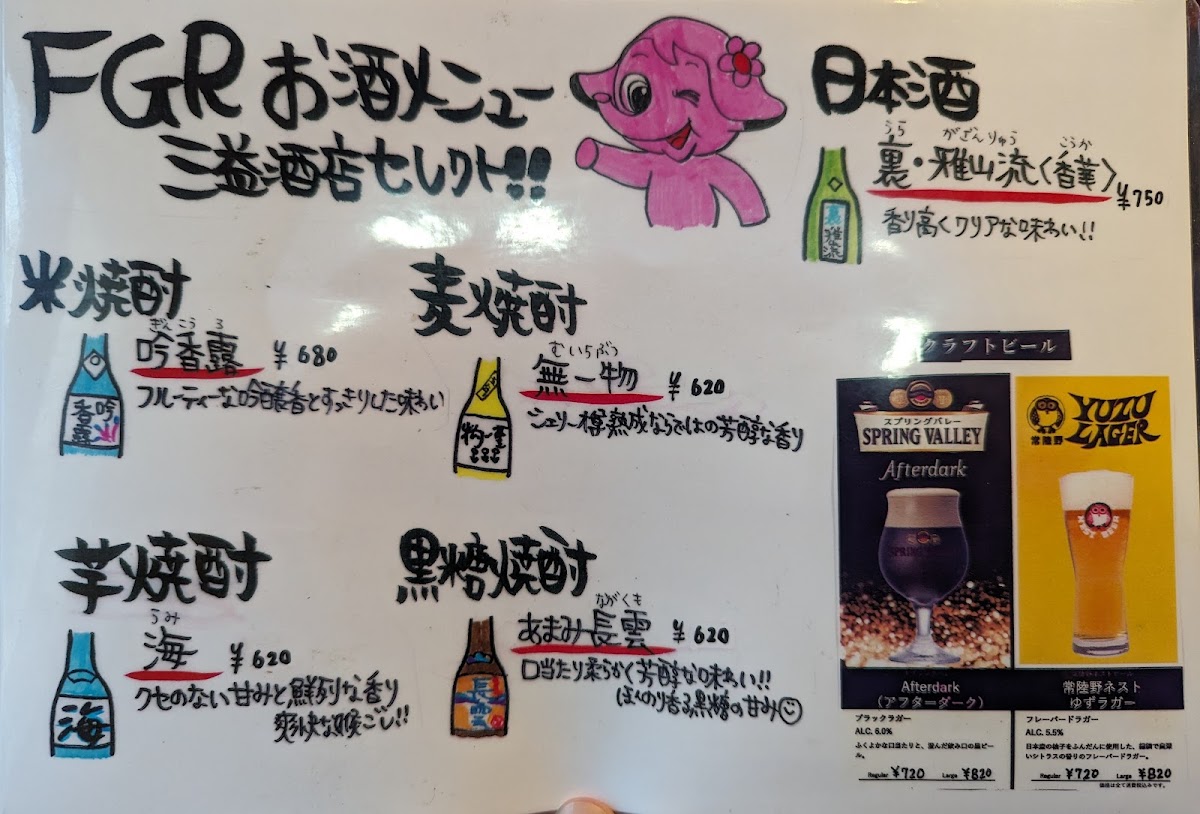 FGR お酒メニュー
三益酒店セレクト!!
日本酒
うら がざんりゅう こうか
裏・雅山流〈香華〉
¥750
香り高くクリアな味わい!!
裏雅流
米焼酎
ぎんこうろ
吟香露 ¥680
フルーティーな吟醸香とすっきりした味わい
吟香露
麦焼酎
むいちぶつ
無一物 ¥620
シェリー樽熟成ならではの芳醇な香り
芋焼酎
うみ
海 ¥620
クセのない甘みと鮮烈な香り
爽快な喉ごし!!
海
黒糖焼酎
ながくも
あまみ長雲 ¥620
口当たり柔らかく芳醇な味わい!!
ほんのり香る黒糖の甘み
長雲
クラフトビール
スプリングバレー
SPRING VALLEY
Afterdark
SPRING VALLEY
Afterdark
(アフターダーク)
ブラックラガー
ALC. 6.0%
ふくよかな口当たりと、澄んだ飲み口の黒ビール。
Regular ¥720 Large ¥820
常陸野
YUZU
LAGER
NEST BEER
常陸野ネスト
ゆずラガー
フレーバードラガー
ALC. 5.5%
日本産の柚子をふんだんに使用した、
いシトラスの香りのフレーバードラガー。
Regular ¥720 Large ¥820
価格は全て消費税込みです。